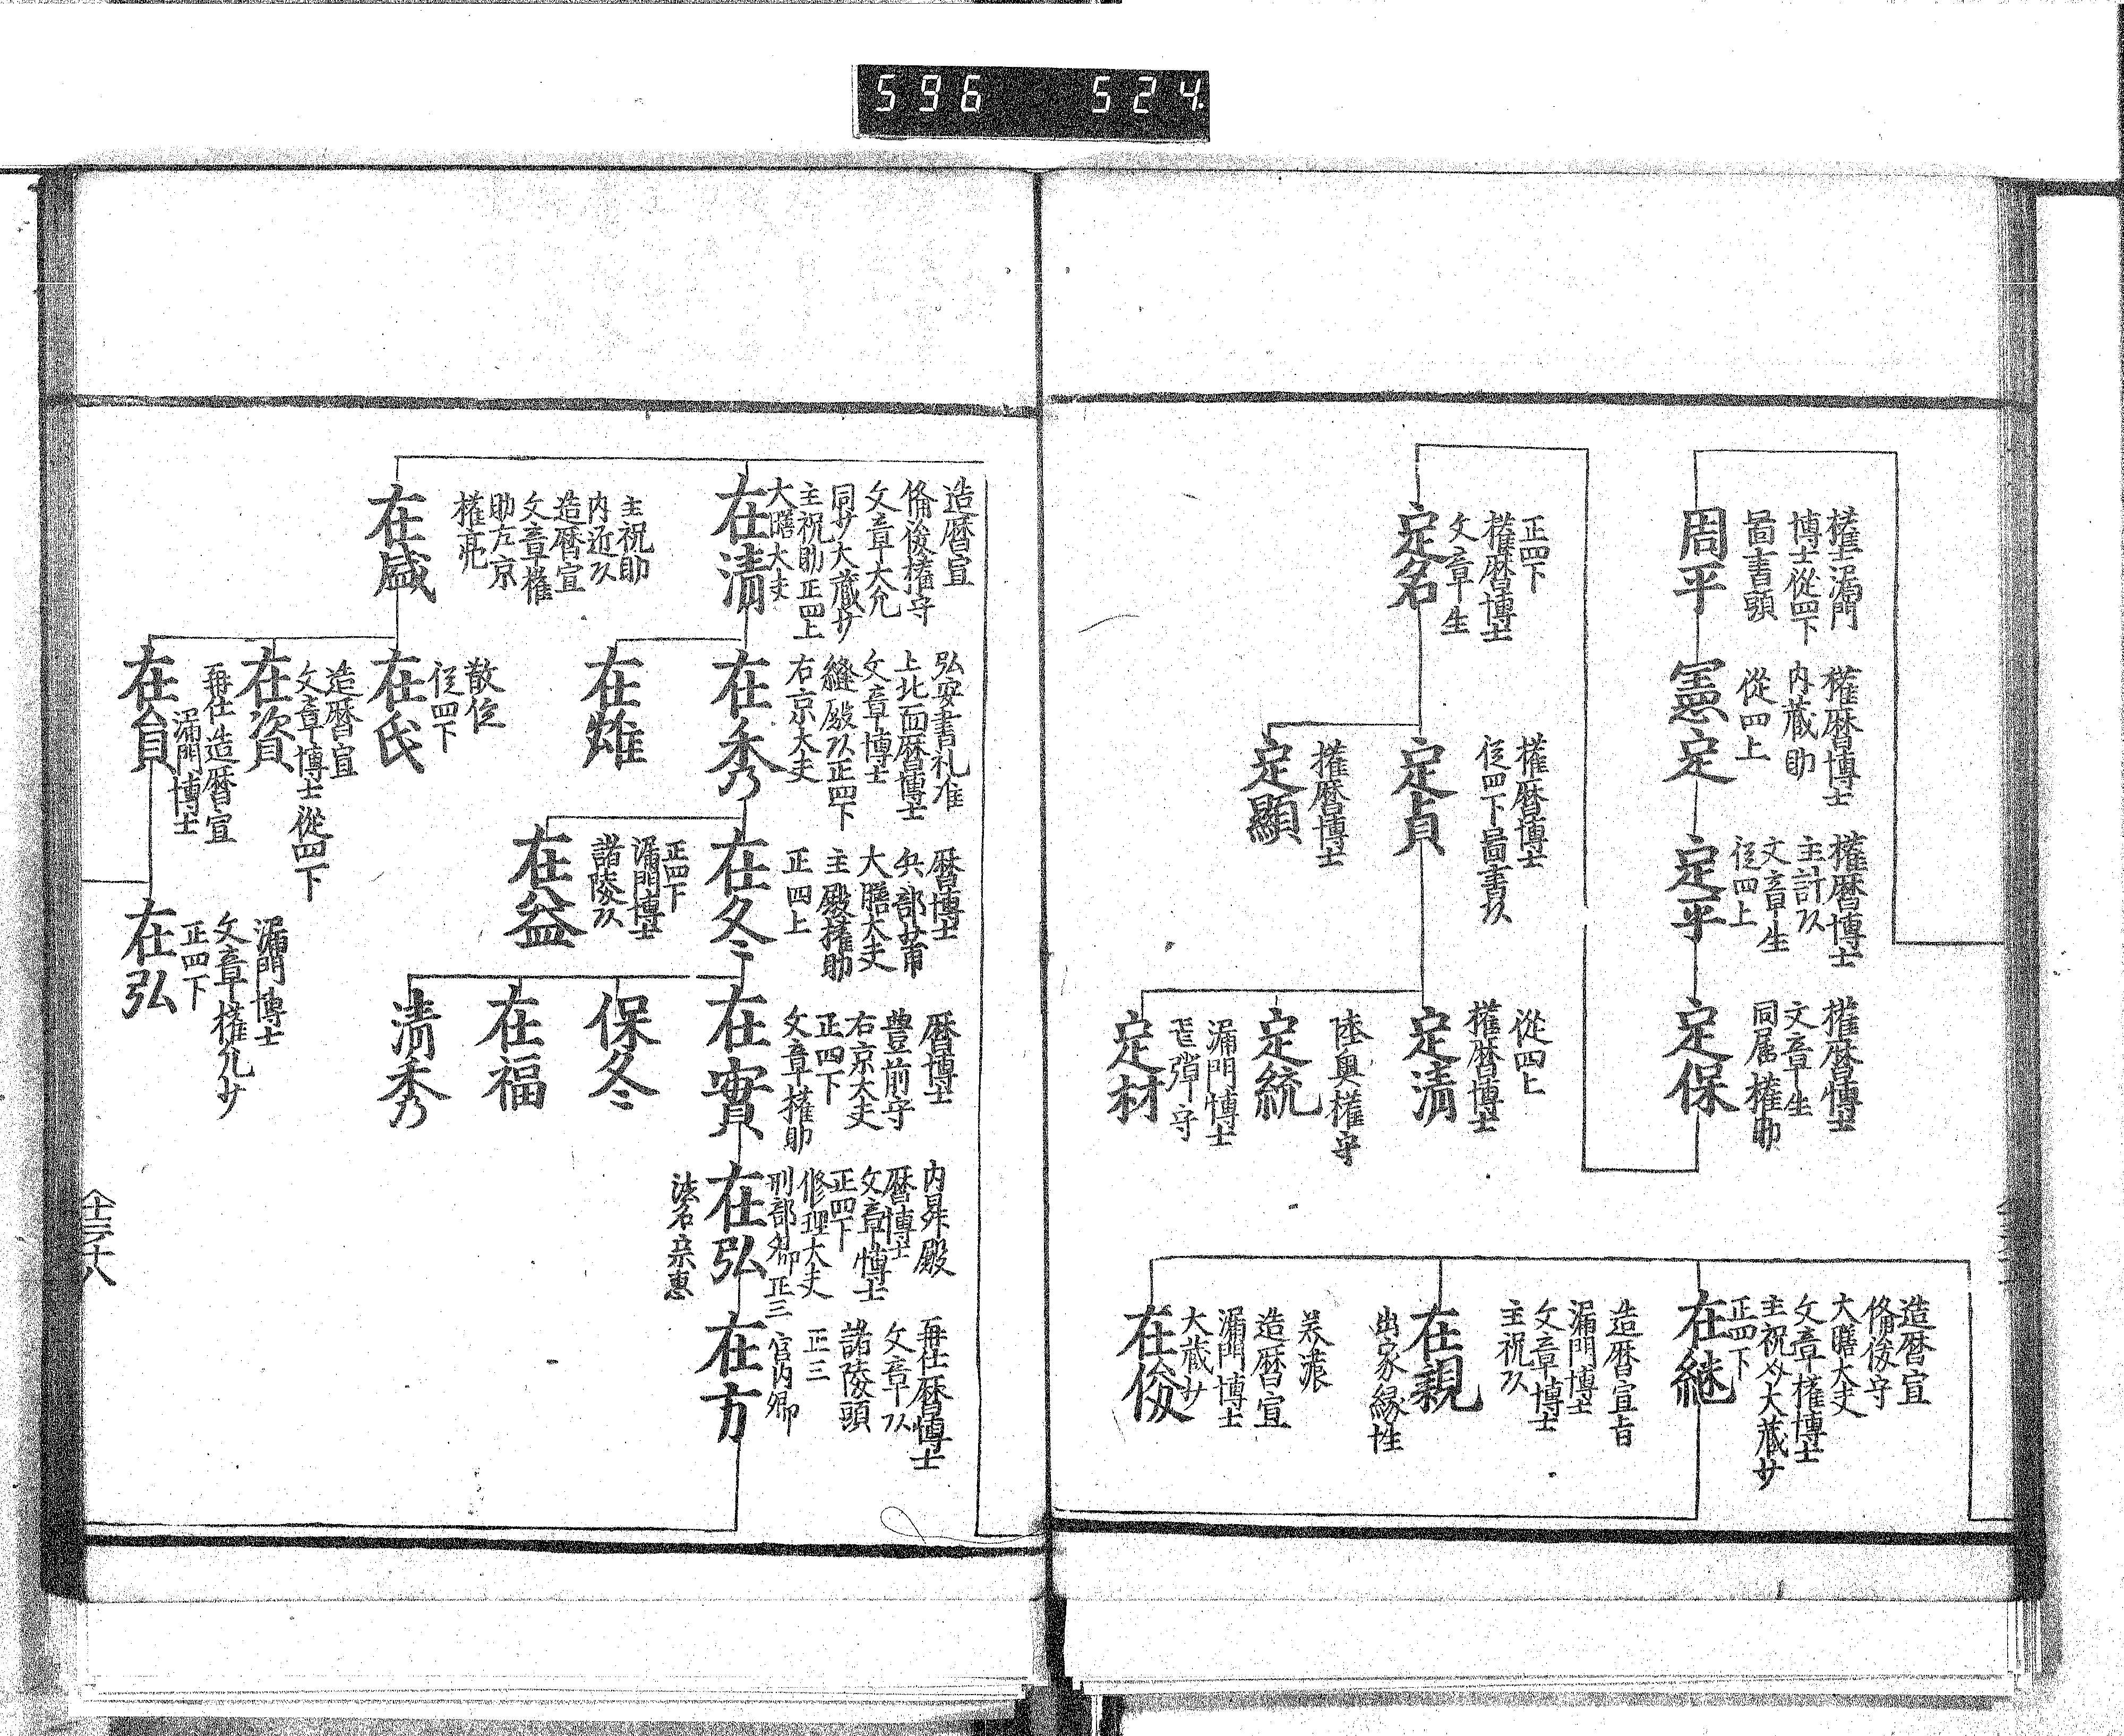 596 524
権漏門
博士從四下
啚書頭
周平
権暦博士
内蔵助
從四上
憲定
権暦博士
主計以
文章生
従四上
定平
権暦博士
文章生
同属権助
定保
正四下
権暦博士
文章生
定名
権暦博士
従四下啚書以
定貞
権暦博士
定顯
從四上
権暦博士
定清
陸奥権守
定統
漏門博士
弾守
定材
造暦宣
偹後守
大膳大夫
文章権博士
主祝大蔵少
正四下
在継
造暦宣旨
漏門博士
文章博士
主祝以
在親
出家縁性
美濃
造暦宣
漏門博士
大蔵少
在俊
造暦宣
偹後権守
文章大允
同少大蔵少
主祝助正四上
大膳大夫
在清
弘安書札准
上北面暦博士
文章博士
縫殿以正四下
右京大夫
在秀
在雄
暦博士
兵部少甫
大膳大夫
主殿権助
正四上
在冬
正四下
漏門博士
諸陵以
在益
暦博士
豊前守
右京大夫
正四下
文章権助
在實
保冬
在福
清秀
内昇殿
暦博士
文章博士
正四下
修理大夫
刑部卿正三
在弘
法名宗惠
再仕暦博士
文章以
諸陵頭
正三
宮内卿
在方
主祝助
内近以
造暦宣
文章権
助左京
権亮
在盛
散位
従四下
在氏
造暦宣
文章博士從四下
在資
再仕造暦宣
漏門博士
在員
漏門博士
文章権允少
正四下
在弘